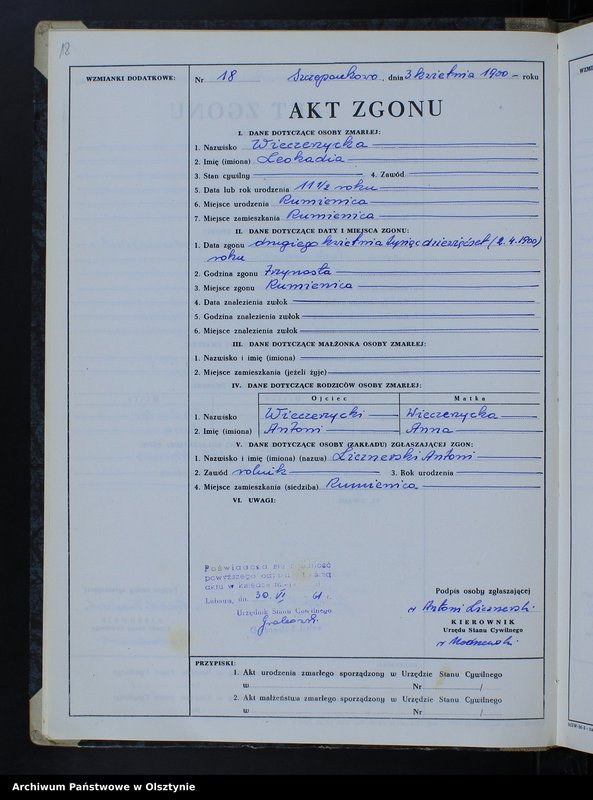 18
WZMIANKI DODATKOWE:
Nr 18 Szczepankowo, dnia 3 kwietnia 1900 - roku
AKT ZGONU
I. DANE DOTYCZĄCE OSOBY ZMARŁEJ:
1. Nazwisko Wieczerzycka
2. Imię (imiona) Leokadia
3. Stan cywilny 4. Zawód
5. Data lub rok urodzenia 11 1/2 roku
6. Miejsce urodzenia Rumienica
7. Miejsce zamieszkania Rumienica
II. DANE DOTYCZĄCE DATY I MIEJSCA ZGONU:
1. Data zgonu drugiego kwietnia tysiąc dziewięćset (2.4.1900)
roku
2. Godzina zgonu
3. Miejsce zgonu Rumienica
4. Data znalezienia zwłok
5. Godzina znalezienia zwłok
6. Miejsce znalezienia zwłok
III. DANE DOTYCZĄCE MAŁŻONKA OSOBY ZMARŁEJ:
1. Nazwisko i imię (imiona)
2. Miejsce zamieszkania (jeżeli żyje)
IV. DANE DOTYCZĄCE RODZICÓW OSOBY ZMARŁEJ:
Ojciec Matka
1. Nazwisko Wieczerzycki Wieczerzycka
2. Imię (imiona) Antoni Anna
V. DANE DOTYCZĄCE OSOBY (ZAKŁADU) ZGŁASZAJĄCEJ ZGON:
1. Nazwisko i imię (imiona) (nazwa) Licznerski Antoni
2. Zawód rolnik 3. Rok urodzenia
4. Miejsce zamieszkania (siedziba) Rumienica
VI. UWAGI:
Poświadcza się zgodność
powyższego odpisu z
aktu w księdze
Lubawa, dn. 30. VI 61 r.
Urzędnik Stanu Cywilnego
Podpis osoby zgłaszającej
Antoni Licznerski
KIEROWNIK
Urzędu Stanu Cywilnego
PRZYPISKI:
1. Akt urodzenia zmarłego sporządzony w Urzędzie Stanu Cywilnego
w Nr /
2. Akt małżeństwa zmarłego sporządzony w Urzędzie Stanu Cywilnego
w Nr /
Archiwum Państwowe w Olsztynie